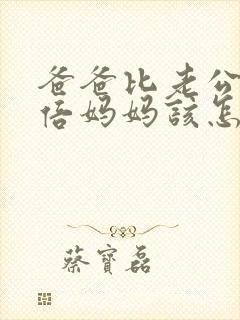 爸爸比老公
倍妈妈该怎
蔡寶磊